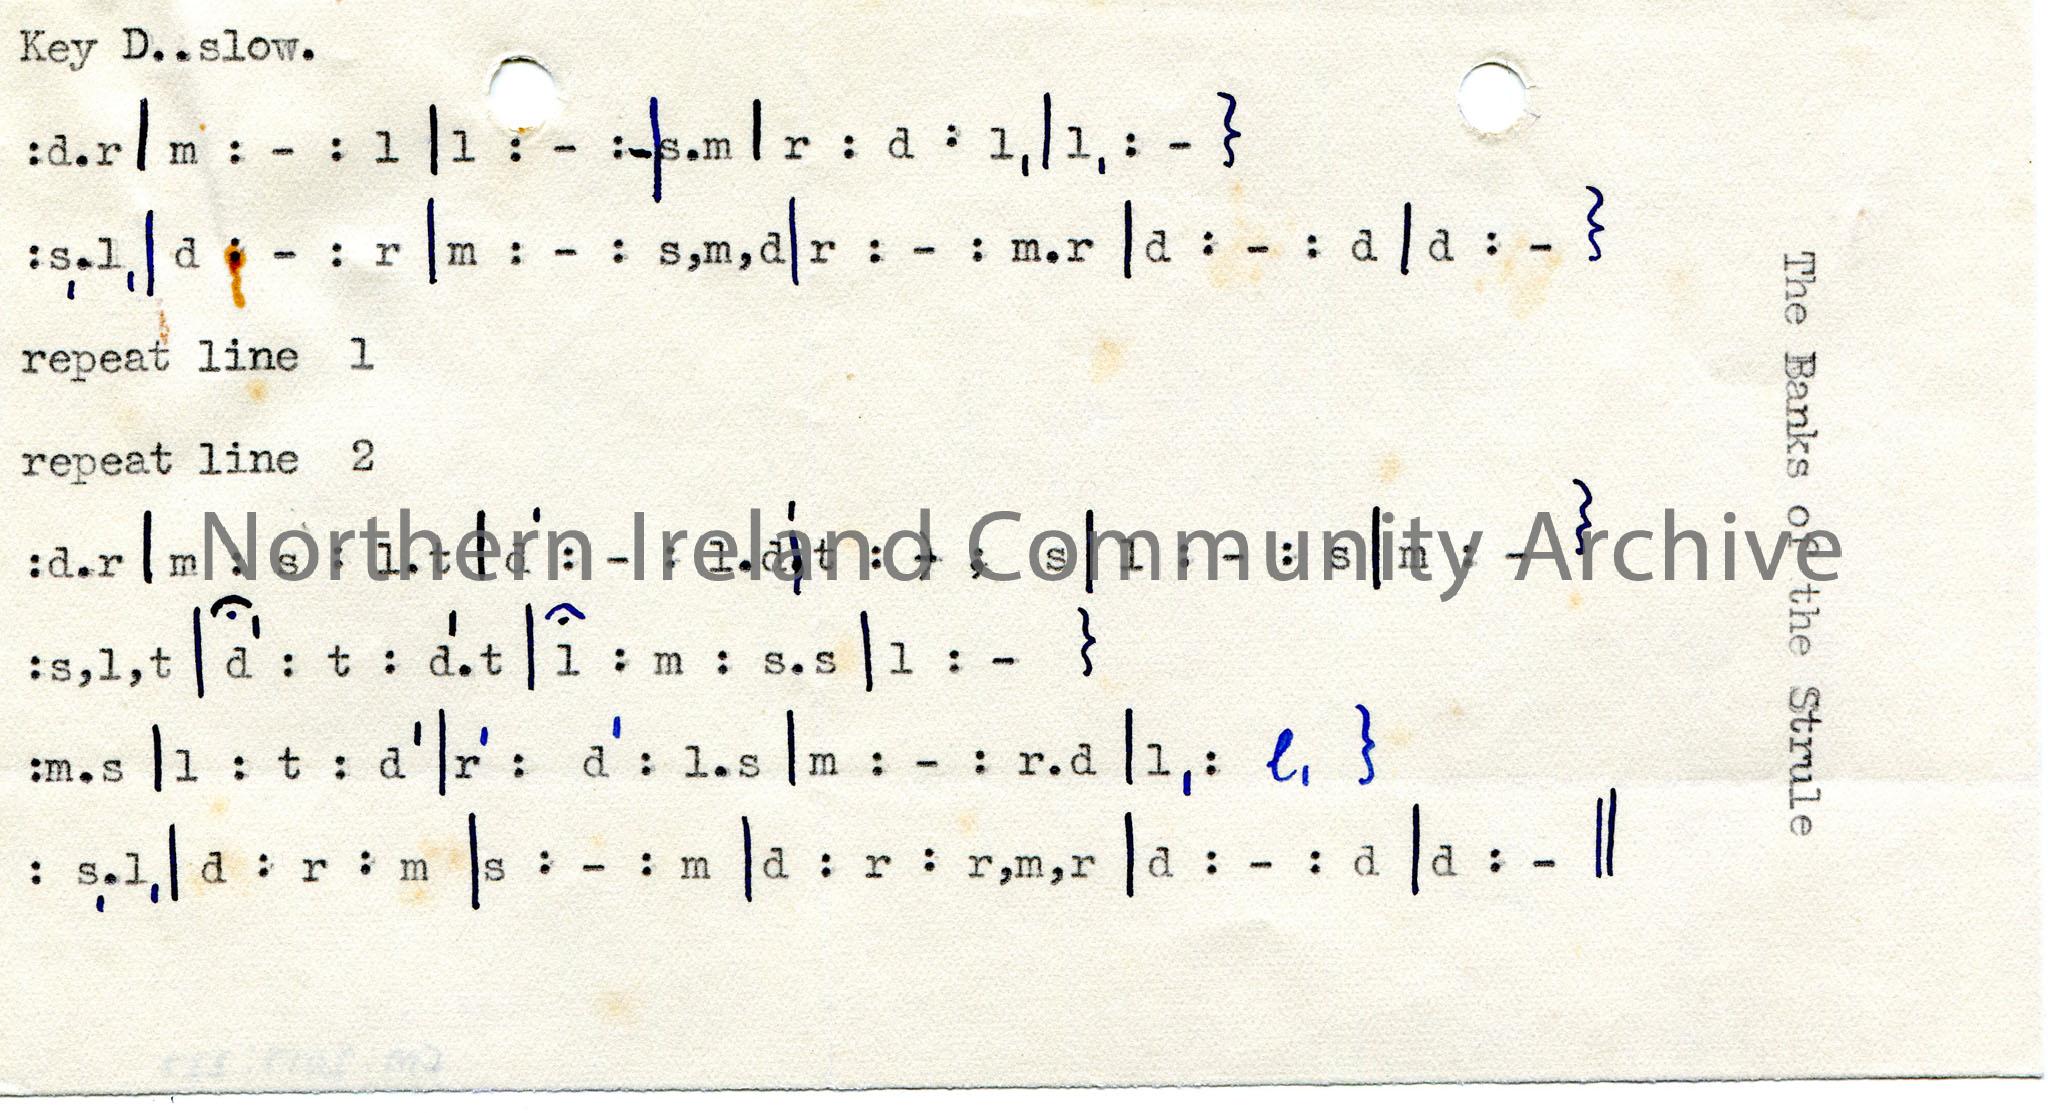 Key D..slow.
:d.r| m : - : l |l : - :-|s.m | r : d : l,|l,: - }
:s,.l,| d : - : r |m : - : s,m,d|r : - : m.r |d : - : d |d : - }
repeat line 1
repeat line 2
:d.r| m : s : l.t|d' : - : l.d'|t : - : s|l : - : s|m : - }
:s,l,t |d' : t : d'.t |l : m : s.s |l : - }
:m.s |l : t : d'|r' : d' : l.s |m : - : r.d |l,: l, }
: s,.l,| d : r : m |s : - : m |d : r : r,m,r |d : - : d |d : - ||
The Banks of the Strule
Northern Ireland Community Archive